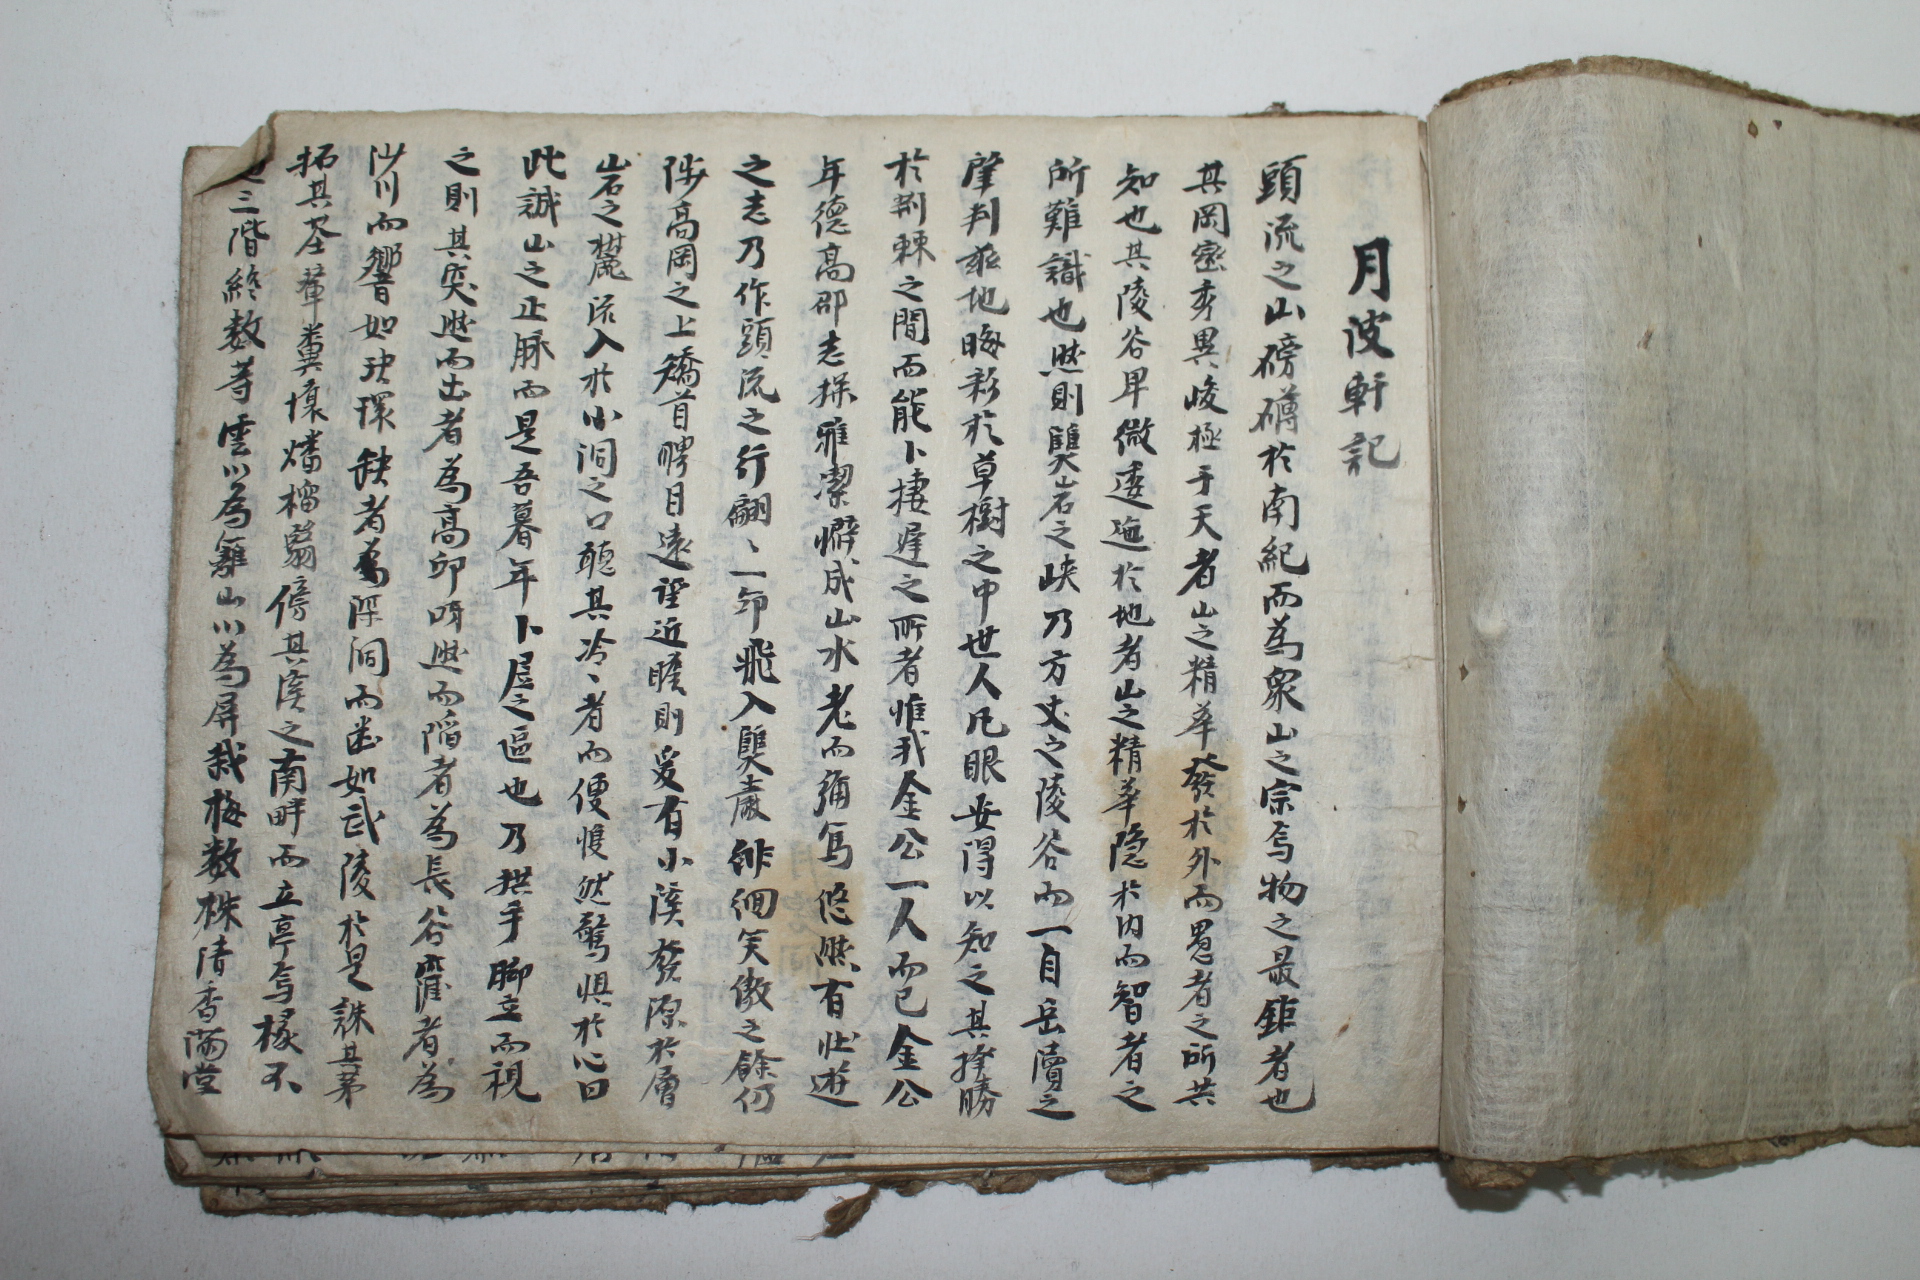 月波軒記
頭流之山磅礡於南紀而為衆山之宗焉物之最鉅者也
其岡巒秀異峻極于天者山之精華發於外而愚者之所共
知也其陵谷卑微逶迤於地者山之精華隐於内而智者之
所難識也然則巽岩之峽乃方丈之陵谷而一自岳瀆之
肇判兹地晦彩於草樹之中世人凡眼安得以知之其擇勝
於荆棘之間而能卜棲遲之所者惟我金公一人而已金公
年德高邵志操雅潔癖成山水老而彌篤悠然有壯遊
之志乃作頭流之行翩〻一節飛入巽岩徘徊笑傲之餘仍
陟高岡之上矯首騁目遠望近瞻則爰有小溪發源於層
岩之麓流入於小洞之口聽其泠〻者而便愯然驚惧於心曰
此誠山之正脉而是吾暮年卜居之區也乃拱手脚立而視
之則其突然而出者為高卯呀然而陷者為長谷窪者為
沙川而響如玦環缺者為深洞而幽如武陵於是誅其茅
拓其荃葺糞壤燔榴翳傍其溪之南畔而立亭焉椽不
三階終數等雲以為籬山以為屏栽梅数株清香滿堂